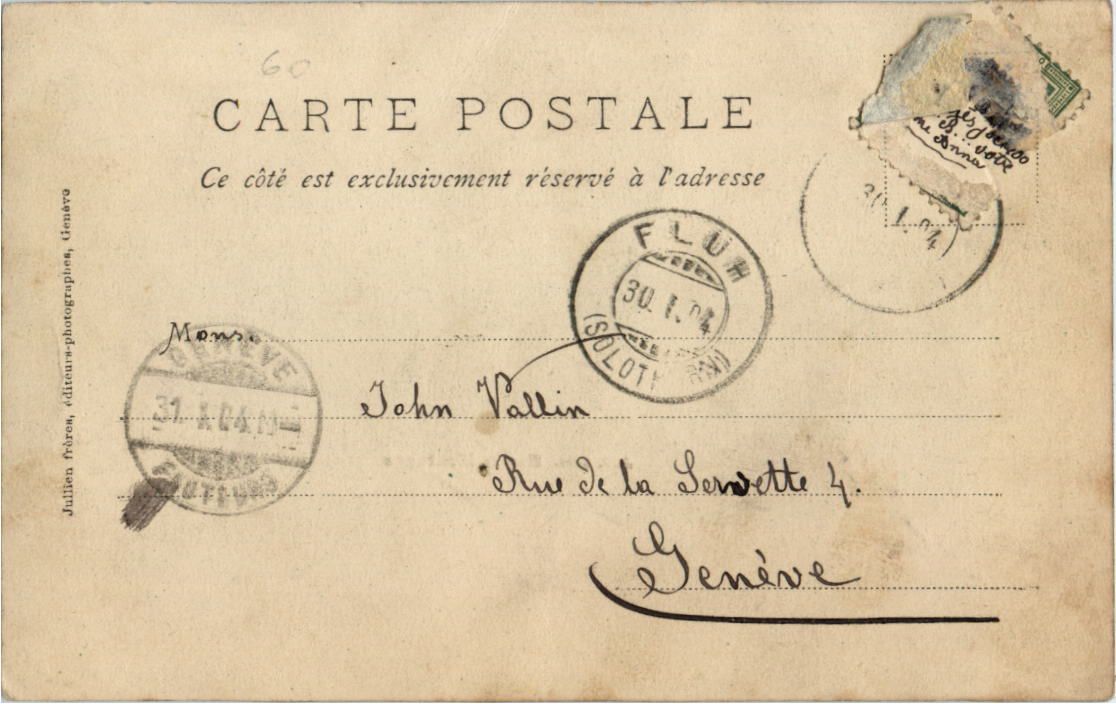 60
CARTE POSTALE
Ce côté est exclusivement réservé à l'adresse
Jullien frères, éditeurs-photographes, Genève
30.I.04
FLÜH
30.I.04
(SOLOTHURN)
Mons.
GENÈVE
31.I.04.
FACTEURS
John Vallin
Rue de la Servette 4.
Genève
votre
Anna